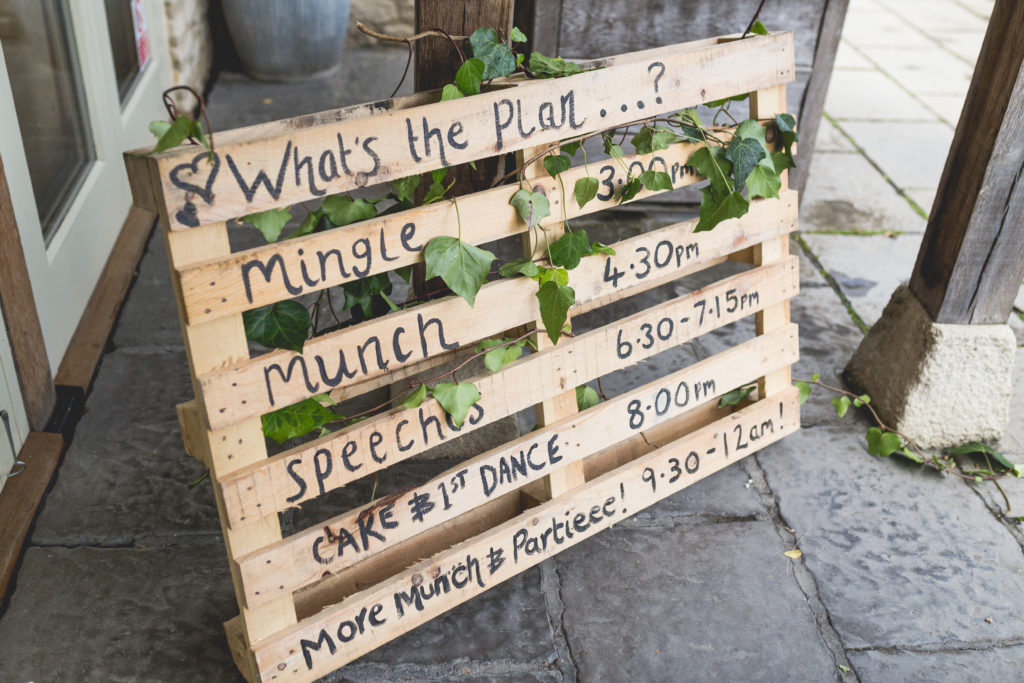 What's the Plan...?
Mingle 3.00pm
Munch 4.30pm
Speeches 6.30-7.15pm
CAKE & 1ST DANCE 8.00pm
More Munch & Partieee! 9.30-12am!